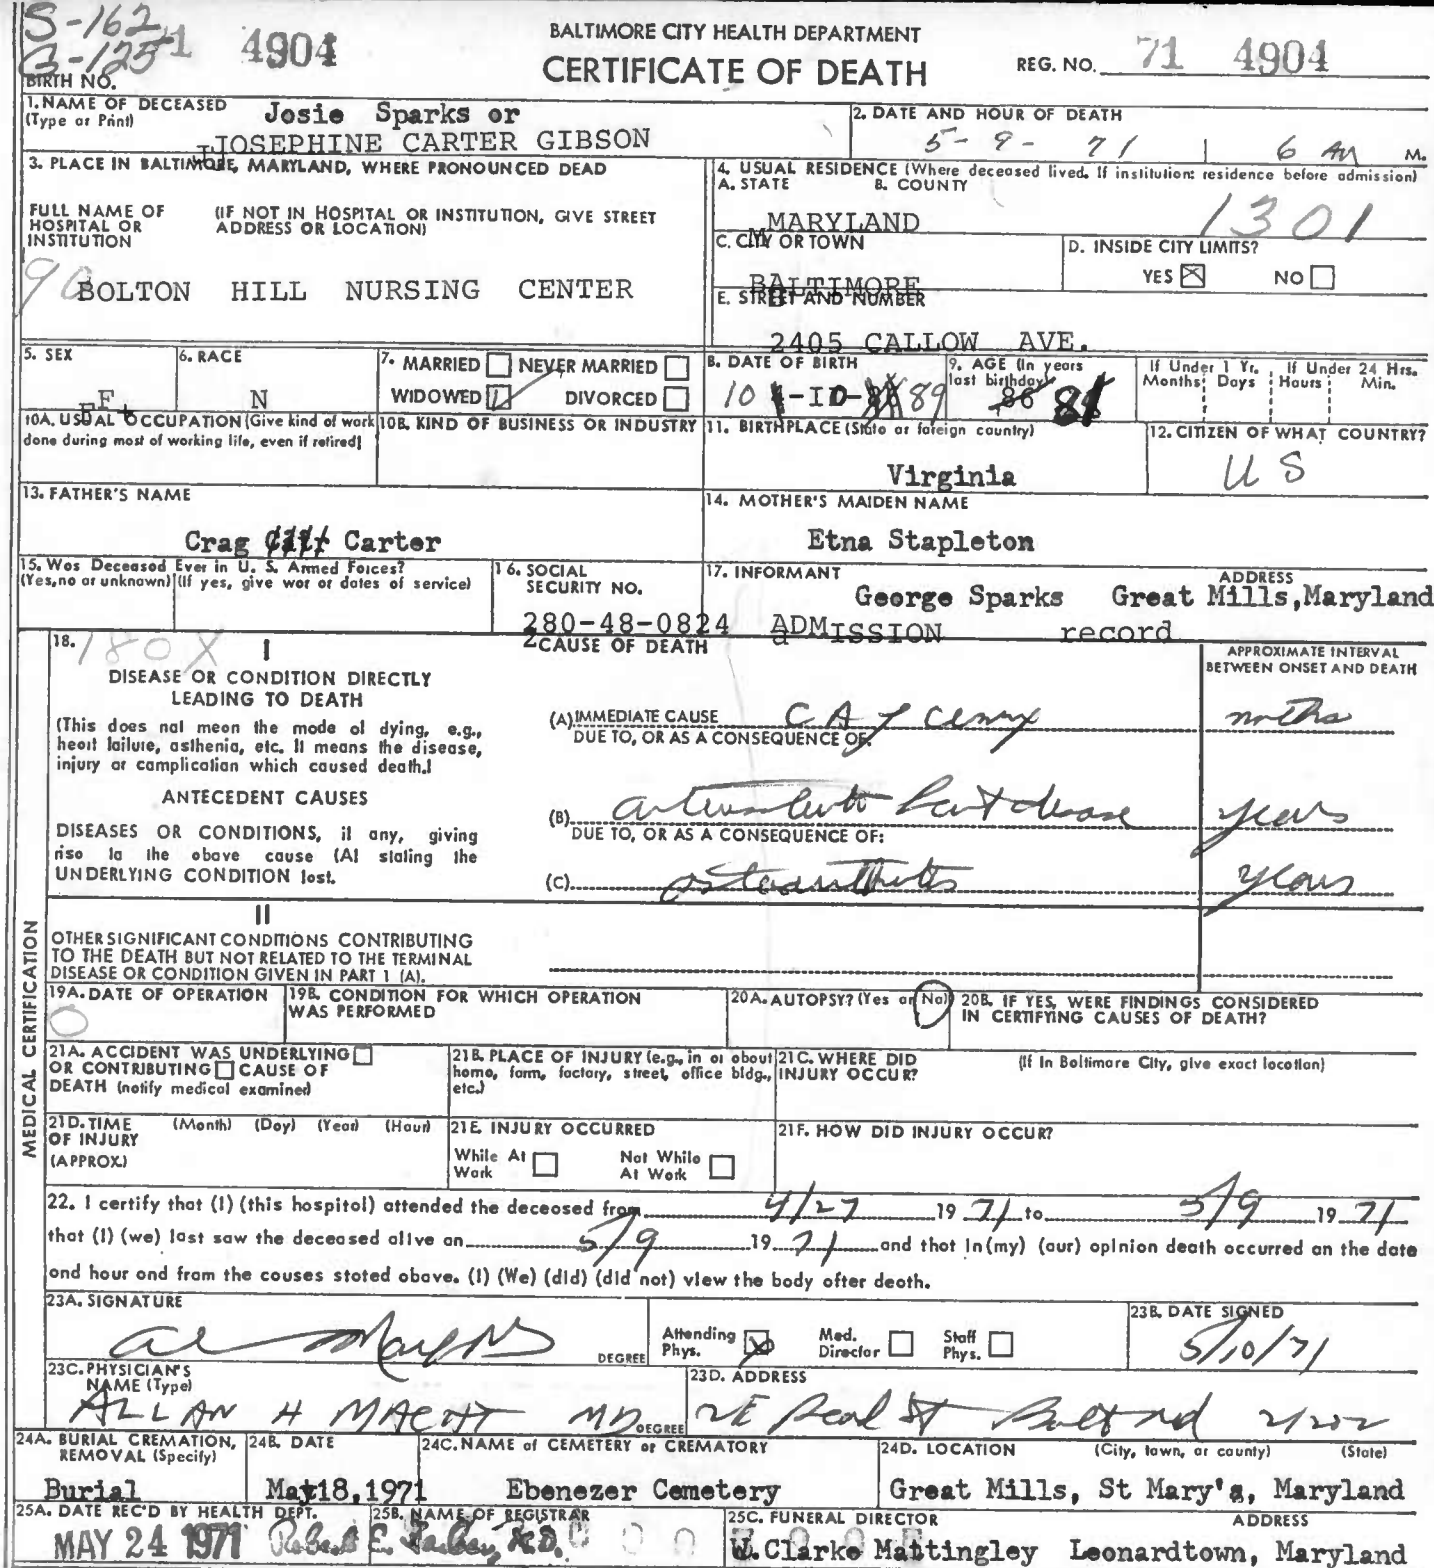 S-162
G-125
71 4904
BALTIMORE CITY HEALTH DEPARTMENT
CERTIFICATE OF DEATH
REG. NO. 71 4904
BIRTH NO.
1. NAME OF DECEASED
(Type or Print)
Josie Sparks or
JOSEPHINE CARTER GIBSON
2. DATE AND HOUR OF DEATH
5-9-71 6 AM M.
3. PLACE IN BALTIMORE, MARYLAND, WHERE PRONOUNCED DEAD
FULL NAME OF HOSPITAL OR INSTITUTION
(IF NOT IN HOSPITAL OR INSTITUTION, GIVE STREET ADDRESS OR LOCATION)
90
BOLTON HILL NURSING CENTER
4. USUAL RESIDENCE (Where deceased lived. If institution: residence before admission)
A. STATE B. COUNTY
MARYLAND 1301
C. CITY OR TOWN
BALTIMORE
D. INSIDE CITY LIMITS?
YES ☒ NO ☐
E. STREET AND NUMBER
2405 CALLOW AVE.
5. SEX
F
6. RACE
N
7. MARRIED ☐ NEVER MARRIED ☐
WIDOWED ☑ DIVORCED ☐
8. DATE OF BIRTH
10 -10- 89
9. AGE (In years last birthday)
86 81
If Under 1 Yr. Months Days
If Under 24 Hrs. Hours Min.
10A. USUAL OCCUPATION (Give kind of work done during most of working life, even if retired)
10B. KIND OF BUSINESS OR INDUSTRY
11. BIRTHPLACE (State or foreign country)
Virginia
12. CITIZEN OF WHAT COUNTRY?
US
13. FATHER'S NAME
Crag Carter
14. MOTHER'S MAIDEN NAME
Etna Stapleton
15. Was Deceased Ever in U. S. Armed Forces?
(Yes, no or unknown) (If yes, give war or dates of service)
16. SOCIAL SECURITY NO.
280-48-0824
17. INFORMANT ADDRESS
George Sparks Great Mills, Maryland
ADMISSION record
MEDICAL CERTIFICATION
18. 180X
I
DISEASE OR CONDITION DIRECTLY LEADING TO DEATH
(This does not mean the mode of dying, e.g., heart failure, asthenia, etc. It means the disease, injury or complication which caused death.)
ANTECEDENT CAUSES
DISEASES OR CONDITIONS, if any, giving rise to the above cause (A) stating the UNDERLYING CONDITION last.
CAUSE OF DEATH
APPROXIMATE INTERVAL BETWEEN ONSET AND DEATH
(A) IMMEDIATE CAUSE CA of cervix months
DUE TO, OR AS A CONSEQUENCE OF:
(B) heart disease years
DUE TO, OR AS A CONSEQUENCE OF:
(C) osteoarthritis years
II
OTHER SIGNIFICANT CONDITIONS CONTRIBUTING TO THE DEATH BUT NOT RELATED TO THE TERMINAL DISEASE OR CONDITION GIVEN IN PART 1 (A).
19A. DATE OF OPERATION
0
19B. CONDITION FOR WHICH OPERATION WAS PERFORMED
20A. AUTOPSY? (Yes or No)
20B. IF YES, WERE FINDINGS CONSIDERED IN CERTIFYING CAUSES OF DEATH?
21A. ACCIDENT WAS UNDERLYING ☐ OR CONTRIBUTING ☐ CAUSE OF DEATH (notify medical examiner)
21B. PLACE OF INJURY (e.g., in or about home, farm, factory, street, office bldg., etc.)
21C. WHERE DID INJURY OCCUR?
(If In Baltimore City, give exact location)
21D. TIME OF INJURY (APPROX.)
(Month) (Day) (Year) (Hour)
21E. INJURY OCCURRED
While At Work ☐ Not While At Work ☐
21F. HOW DID INJURY OCCUR?
22. I certify that (I) (this hospital) attended the deceased from 4/27 19 71 to 5/9 19 71
that (I) (we) last saw the deceased alive on 5/9 19 71 and that in (my) (our) opinion death occurred on the date
and hour and from the causes stated above. (I) (We) (did) (did not) view the body after death.
23A. SIGNATURE
DEGREE
Attending Phys. ☒ Med. Director ☐ Staff Phys. ☐
23B. DATE SIGNED
5/10/71
23C. PHYSICIAN'S NAME (Type)
ALLAN H MACHT MD DEGREE
23D. ADDRESS
2 E Read St Balto md 21202
24A. BURIAL CREMATION, REMOVAL (Specify)
Burial
24B. DATE
May 18, 1971
24C. NAME of CEMETERY or CREMATORY
Ebenezer Cemetery
24D. LOCATION (City, town, or county) (State)
Great Mills, St Mary's, Maryland
25A. DATE REC'D BY HEALTH DEPT.
MAY 24 1971
25B. NAME OF REGISTRAR
Robert E. Farber, M.D.
25C. FUNERAL DIRECTOR ADDRESS
W. Clarke Mattingley Leonardtown, Maryland